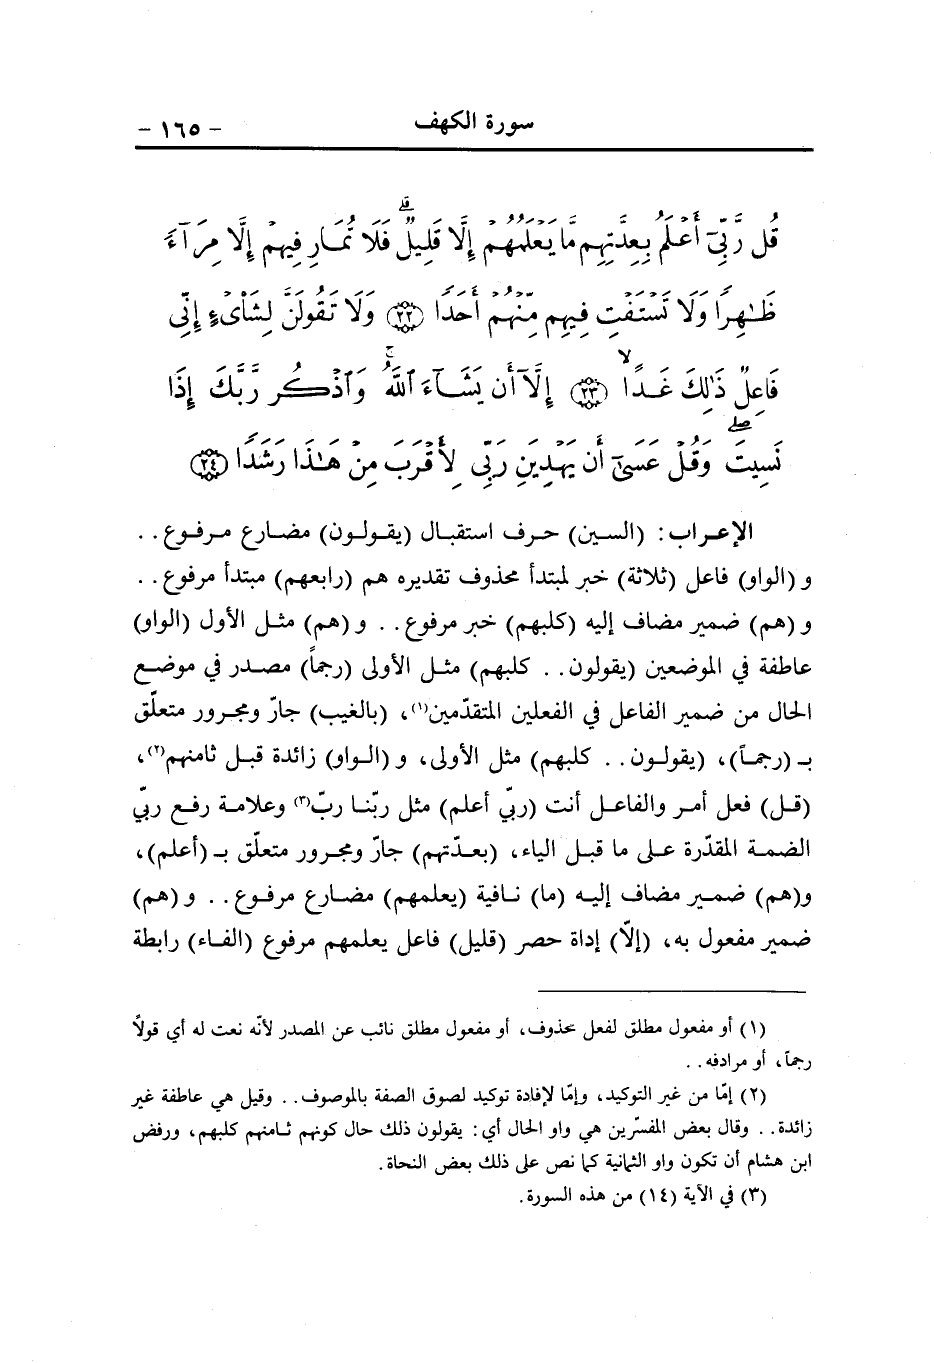 سورة الكهف
- ١٦٥ -
قُل رَّبِّىٓ أَعْلَمُ بِعِدَّتِهِم مَّا يَعْلَمُهُمْ إِلَّا قَلِيلٌ ۗ فَلَا تُمَارِ فِيهِمْ إِلَّا مِرَآءً
ظَـٰهِرًا وَلَا تَسْتَفْتِ فِيهِم مِّنْهُمْ أَحَدًا ﴿٢٢﴾ وَلَا تَقُولَنَّ لِشَا۟ىْءٍ إِنِّى
فَاعِلٌ ذَٰلِكَ غَدًا ۙ ﴿٢٣﴾ إِلَّآ أَن يَشَآءَ ٱللَّهُ ۚ وَٱذْكُر رَّبَّكَ إِذَا
نَسِيتَ ۖ وَقُلْ عَسَىٰٓ أَن يَهْدِيَنِ رَبِّى لِأَقْرَبَ مِنْ هَـٰذَا رَشَدًا ﴿٢٤﴾
الإعراب: (السين) حرف استقبال (يقولون) مضارع مرفوع..
و (الواو) فاعل (ثلاثة) خبر لمبتدأ محذوف تقديره هم (رابعهم) مبتدأ مرفوع..
و (هم) ضمير مضاف إليه (كلبهم) خبر مرفوع.. و (هم) مثل الأول (الواو)
عاطفة في الموضعين (يقولون.. كلبهم) مثل الأولى (رجماً) مصدر في موضع
الحال من ضمير الفاعل في الفعلين المتقدّمين(١)، (بالغيب) جارّ ومجرور متعلّق
بـ (رجماً)، (يقولون.. كلبهم) مثل الأولى، و (الواو) زائدة قبل ثامنهم(٢)،
(قل) فعل أمر والفاعل أنت (ربّي أعلم) مثل ربّنا ربّ(٣) وعلامة رفع ربّي
الضمة المقدّرة على ما قبل الياء، (بعدّتهم) جارّ ومجرور متعلّق بـ (أعلم)،
و(هم) ضمير مضاف إليه (ما) نافية (يعلمهم) مضارع مرفوع.. و (هم)
ضمير مفعول به، (إلّا) إداة حصر (قليل) فاعل يعلمهم مرفوع (الفاء) رابطة
(١) أو مفعول مطلق لفعل محذوف، أو مفعول مطلق نائب عن المصدر لأنّه نعت له أي قولاً
رجماً، أو مرادفه..
(٢) إمّا من غير التوكيد، وإمّا لإفادة توكيد لصوق الصفة بالموصوف.. وقيل هي عاطفة غير
زائدة.. وقال بعض المفسّرين هي واو الحال أي: يقولون ذلك حال كونهم ثامنهم كلبهم، ورفض
ابن هشام أن تكون واو الثمانية كما نص على ذلك بعض النحاة.
(٣) في الآية (١٤) من هذه السورة.